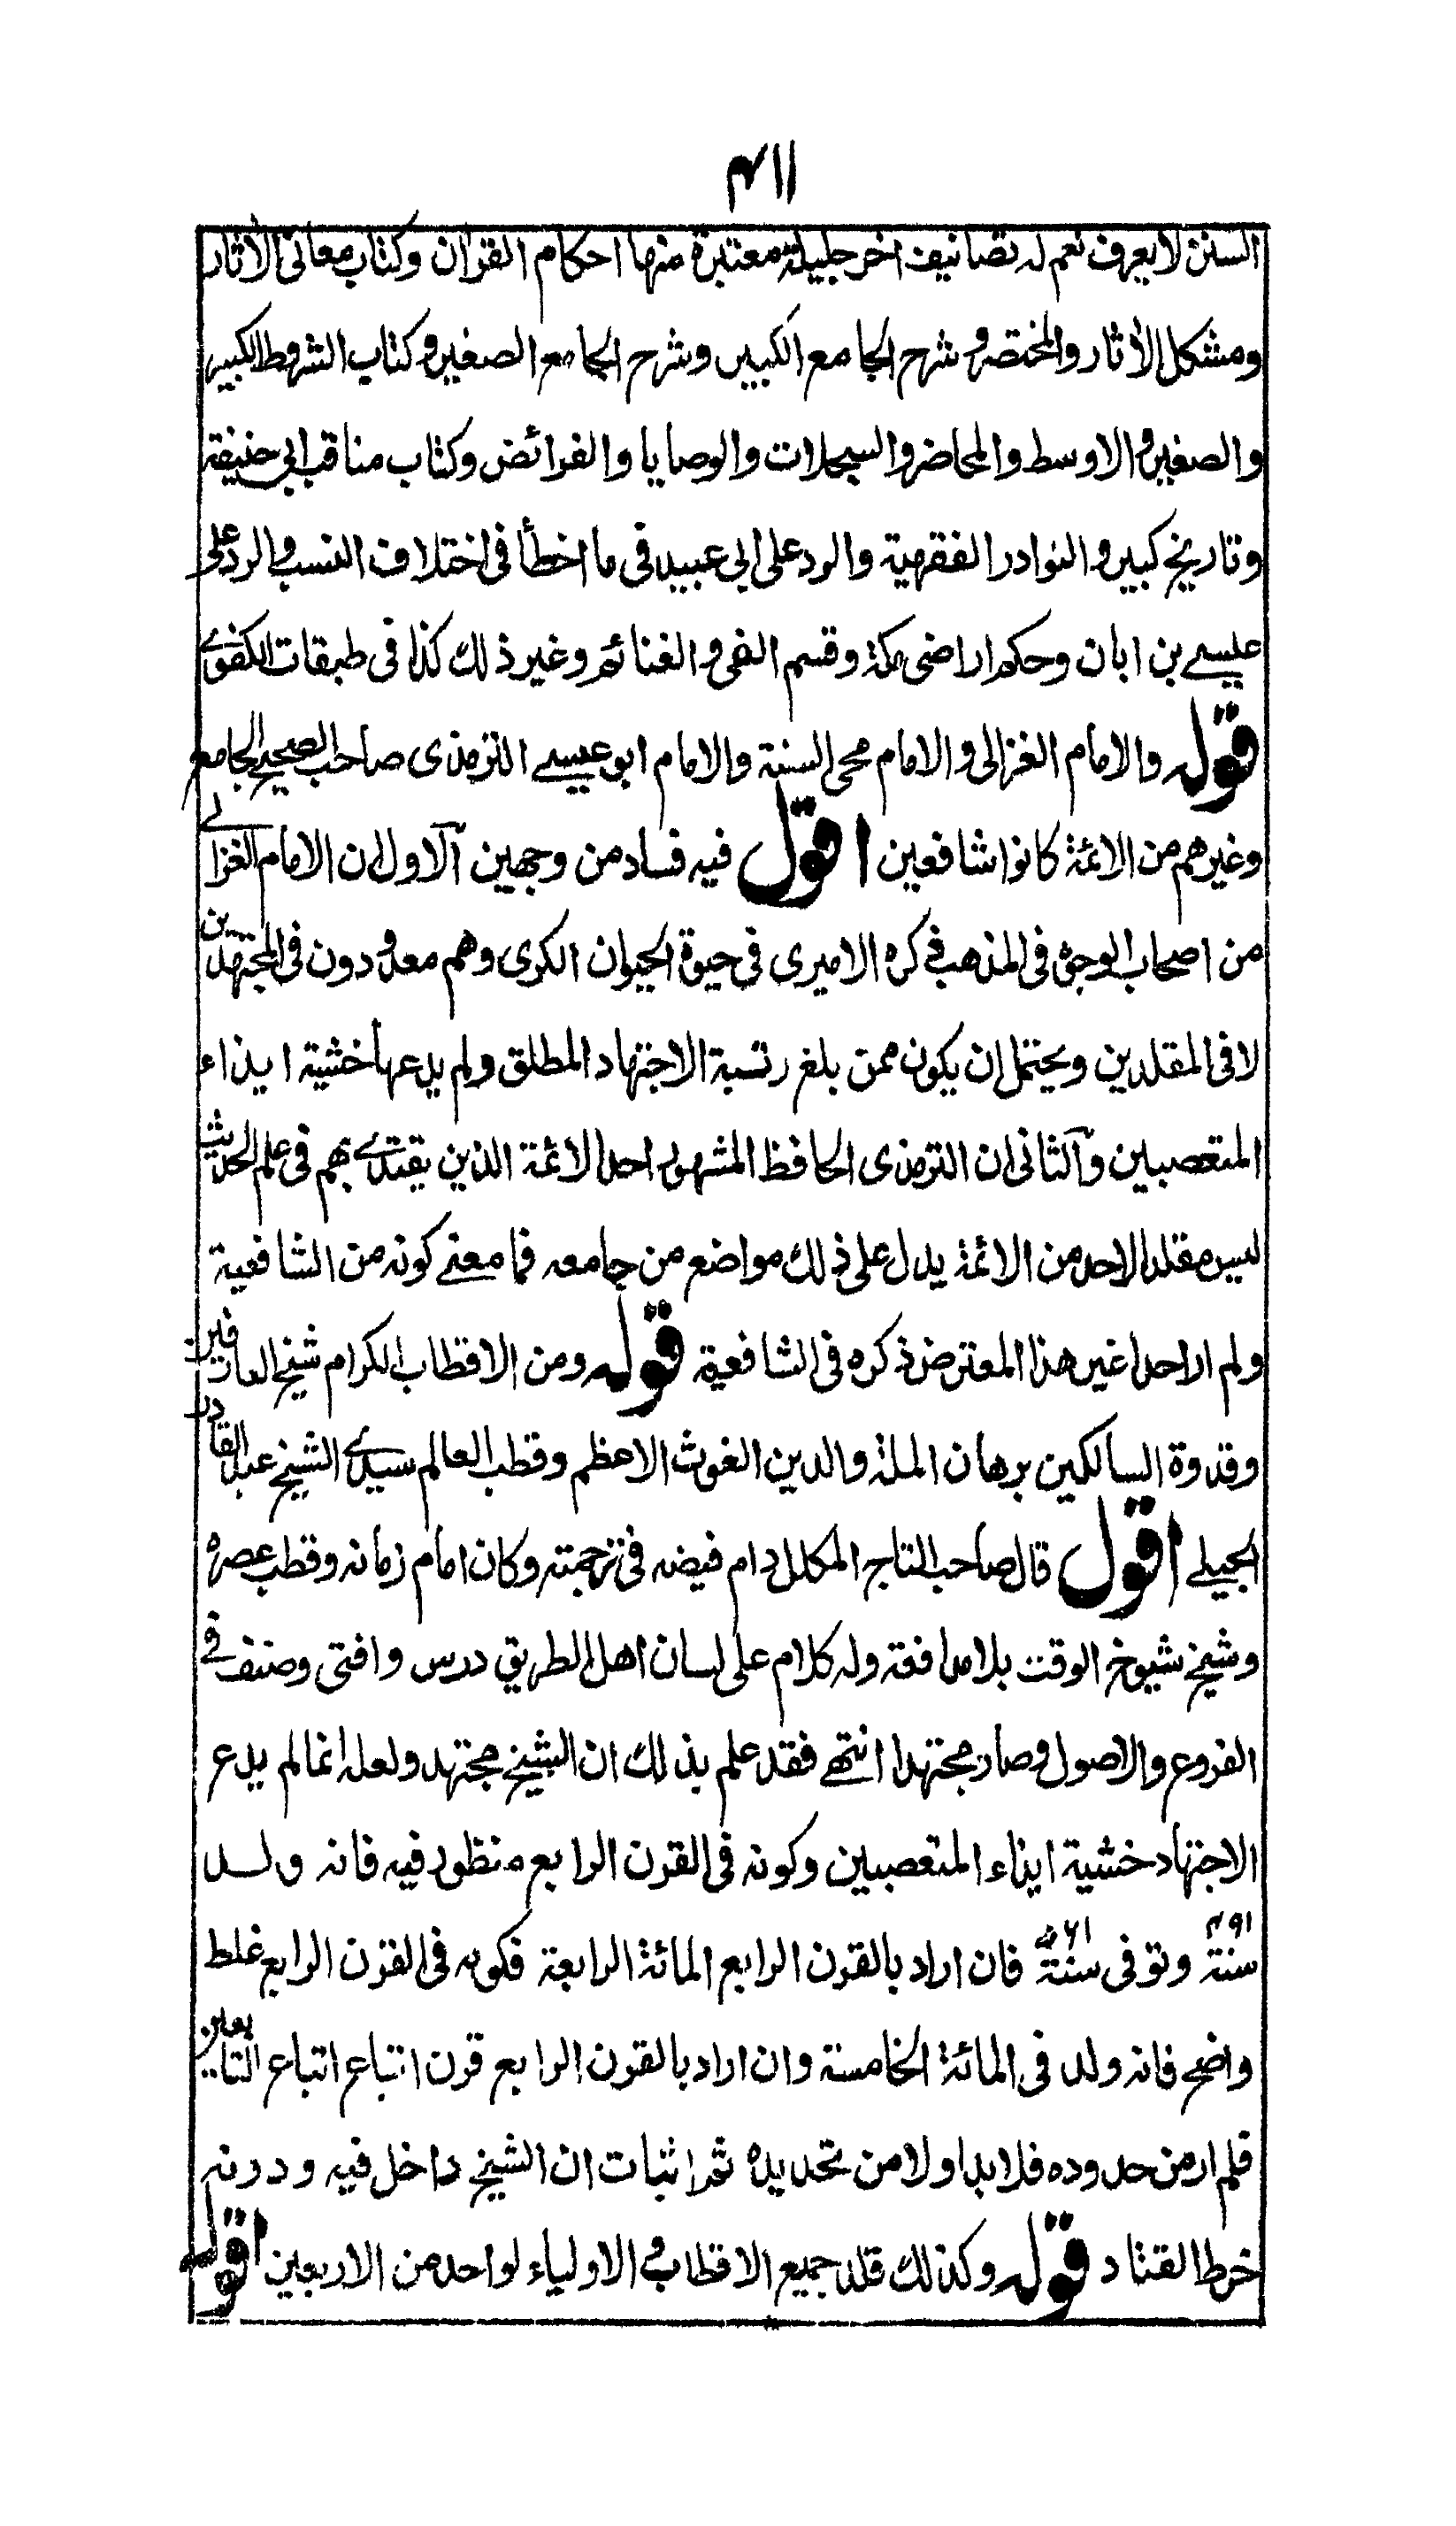 ۴۱۱
السنن لا يعرف نعم له تصانيف اخر جليلة معتبرة منها احكام القران وكتاب معانى الاٰثار
ومشكل الاٰثار والمختصر وشرح الجامع الكبير وشرح الجامع الصغير وكتاب الشروط الكبير
والصغير والاوسط والمحاضر والسجلات والوصايا والفرائض وكتاب مناقب ابى حنيفة
وتاريخ كبير والنوادر الفقهية والرد على ابى عبيد فى ما اخطأ فى اختلاف النسب والرد على
عيسے بن ابان وحكم اراضى مكة وقسم الفى والغنائم وغير ذلك كذا فى طبقات الكفوے
قوله والامام الغزالى والامام محى السنة والامام ابو عيسے الترمذى صاحب الصحيح الجامع
وغيرهم من الائمة كانوا شافعين اقول فيه فساد من وجهين آلاول ان الامام الغزالے
من اصحاب الوجوه فى المذهب ذكره الاميرى فى حيوة الحيوان الكبرى وهم معدودون فى المجتهدين
لا فى المقلدين ويحتمل ان يكون ممن بلغ رتبة الاجتهاد المطلق ولم يدعها خشية ايذاء
المتعصبين وآلثانى ان الترمذى الحافظ المشهور احد الائمة الذين يقتدے بهم فى علم الحديث
ليس مقلدا لاحد من الائمة يدل على ذلك مواضع من جامعه فما معنے كونه من الشافعية
ولم ار احدا غير هذا المعترض ذكره فى الشافعية قوله ومن الاقطاب الكرام شيخ العارفين
وقدوة السالكين برهان الملة والدين الغوث الاعظم وقطب العالم سيدے الشيخ عبد القادر
الجيلے اقول قال صاحب التاج المكلل دام فيضه فى ترجمته وكان امام زمانه وقطب عصره
وشيخ شيوخ الوقت بلا مدافعة وله كلام على لسان اهل الطريق درس وافتى وصنف فے
الفروع والاصول وصار مجتهدا انتهے فقد علم بذلك ان الشيخ مجتهد ولعله انما لم يدع
الاجتهاد خشية ايذاء المتعصبين وكونه فى القرن الرابع منظور فيه فانه ولد
سنة ۴۹۱ وتوفى سنة ۵۶۱ فان اراد بالقرن الرابع المائة الرابعة فكونه فى القرن الرابع غلط
واضح فانه ولد فى المائة الخامسة وان اراد بالقرن الرابع قرن اتباع اتباع التابعين
فلم ار من حدوده فلا بد اولا من تحديده ثم اثبات ان الشيخ داخل فيه ودونه
خرط القتاد قوله وكذلك قلد جميع الاقطاب والاولياء لواحد من الاربعين اقول